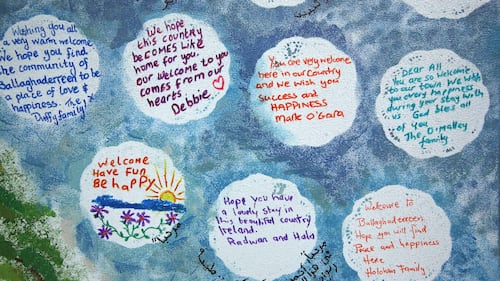 Wishing you all
a very warm welcome
We hope you find
the community of
Ballaghaderreen to be
a place of love &
happiness. The
Duffy family!
We hope
this country
beCOMES Like
home for you.
our welcome to you
comes from our
hearts
Debbie
You are very welcome
here in our Country
and we wish you
success and
HAPPINESS
Mark O'Gara
Dear All
You are so Welcome
to our town We wish
you every Happiness
during your stay with
us. God bless all
of You
The O'Malley
family
Welcome
Have Fun
Be happy
مرحبا
Hope you have
a lovely stay in
this beautiful country
Ireland
Radwan and Hala
Welcome to
Ballaghaderreen
Hope you will find
Peace and happiness
Here
Holohan Family